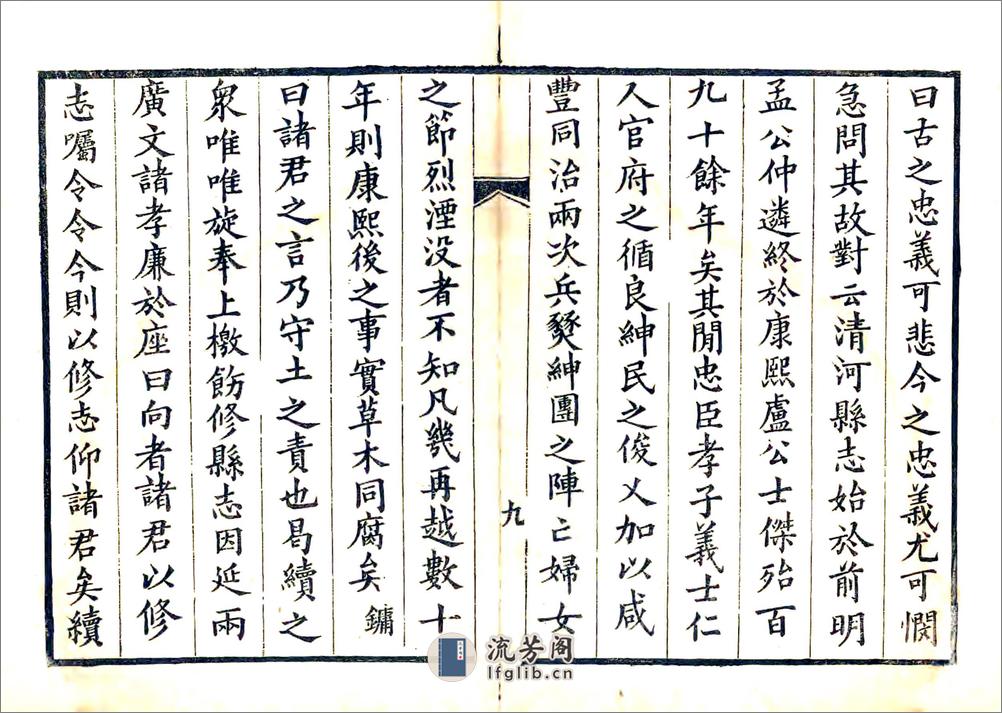 曰古之忠義可悲今之忠義尤可憫
急問其故對云清河縣志始於前明
孟公仲遴終於康熙盧公士傑殆百
九十餘年矣其閒忠臣孝子義士仁
人官府之循良紳民之俊乂加以咸
豐同治兩次兵燹紳團之陣亡婦女
九
之節烈湮没者不知凡幾再越數十
年則康熙後之事實草木同腐矣鏞
曰諸君之言乃守土之責也曷續之
衆唯唯旋奉上檄飭修縣志因延兩
廣文諸孝廉於座曰向者諸君以修
志囑令令今則以修志仰諸君矣續
流芳阁
lfglib.cn